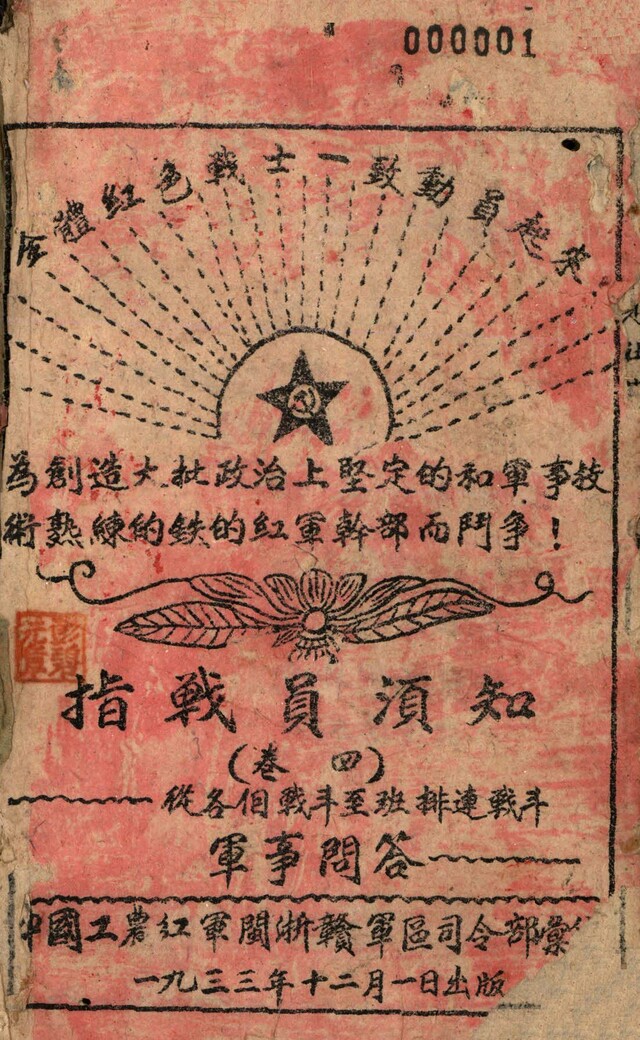 000001
全體紅色戰士一致動員起來
為創造大批政治上堅定的和軍事技
術熟練的鉄的紅軍幹部而鬥争！
指戰員須知
（卷四）
從各個戰斗至班排連戰斗
軍事問答
中國工農紅軍閩浙贛軍區司令部彙
一九三三年十二月一日出版